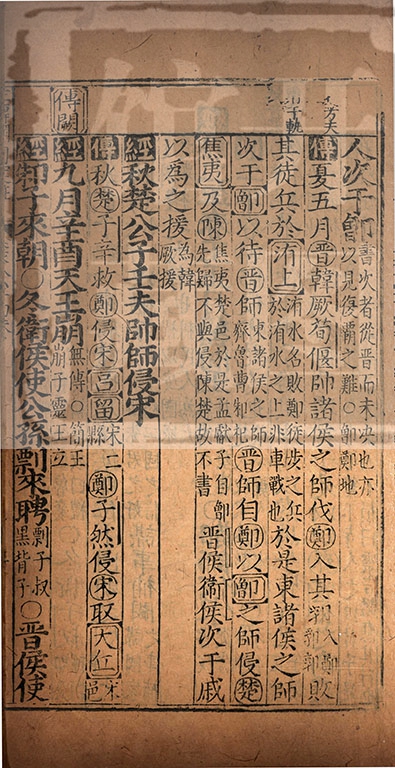 人次于鄫書次者從晉而未央也亦以見復霸之難○鄫鄭地
傳夏五月晉韓厥荀偃帥諸侯之師伐鄭入其郛敗
其徒兵於洧上洧水名敗鄭徒步之兵於洧水之上非車戰也於是東諸侯之師
次于鄫以待晉師東諸侯之師齊魯曹邾杞晉師自鄭以鄫之師侵楚
焦夷及陳焦夷楚邑於是孟獻子自鄫先歸不與侵陳楚故不書○晉侯衛侯次于戚
以為之援為韓厥援
經秋楚公子壬夫帥師侵宋
傳秋楚子辛救鄭侵宋呂留宋二縣鄭子然侵宋取犬丘宋邑
經九月辛酉天王崩無傳○簡王崩子靈王立
傳闕
經邾子來朝○冬衛侯使公孫剽來聘剽子叔黑背子○晉侯使